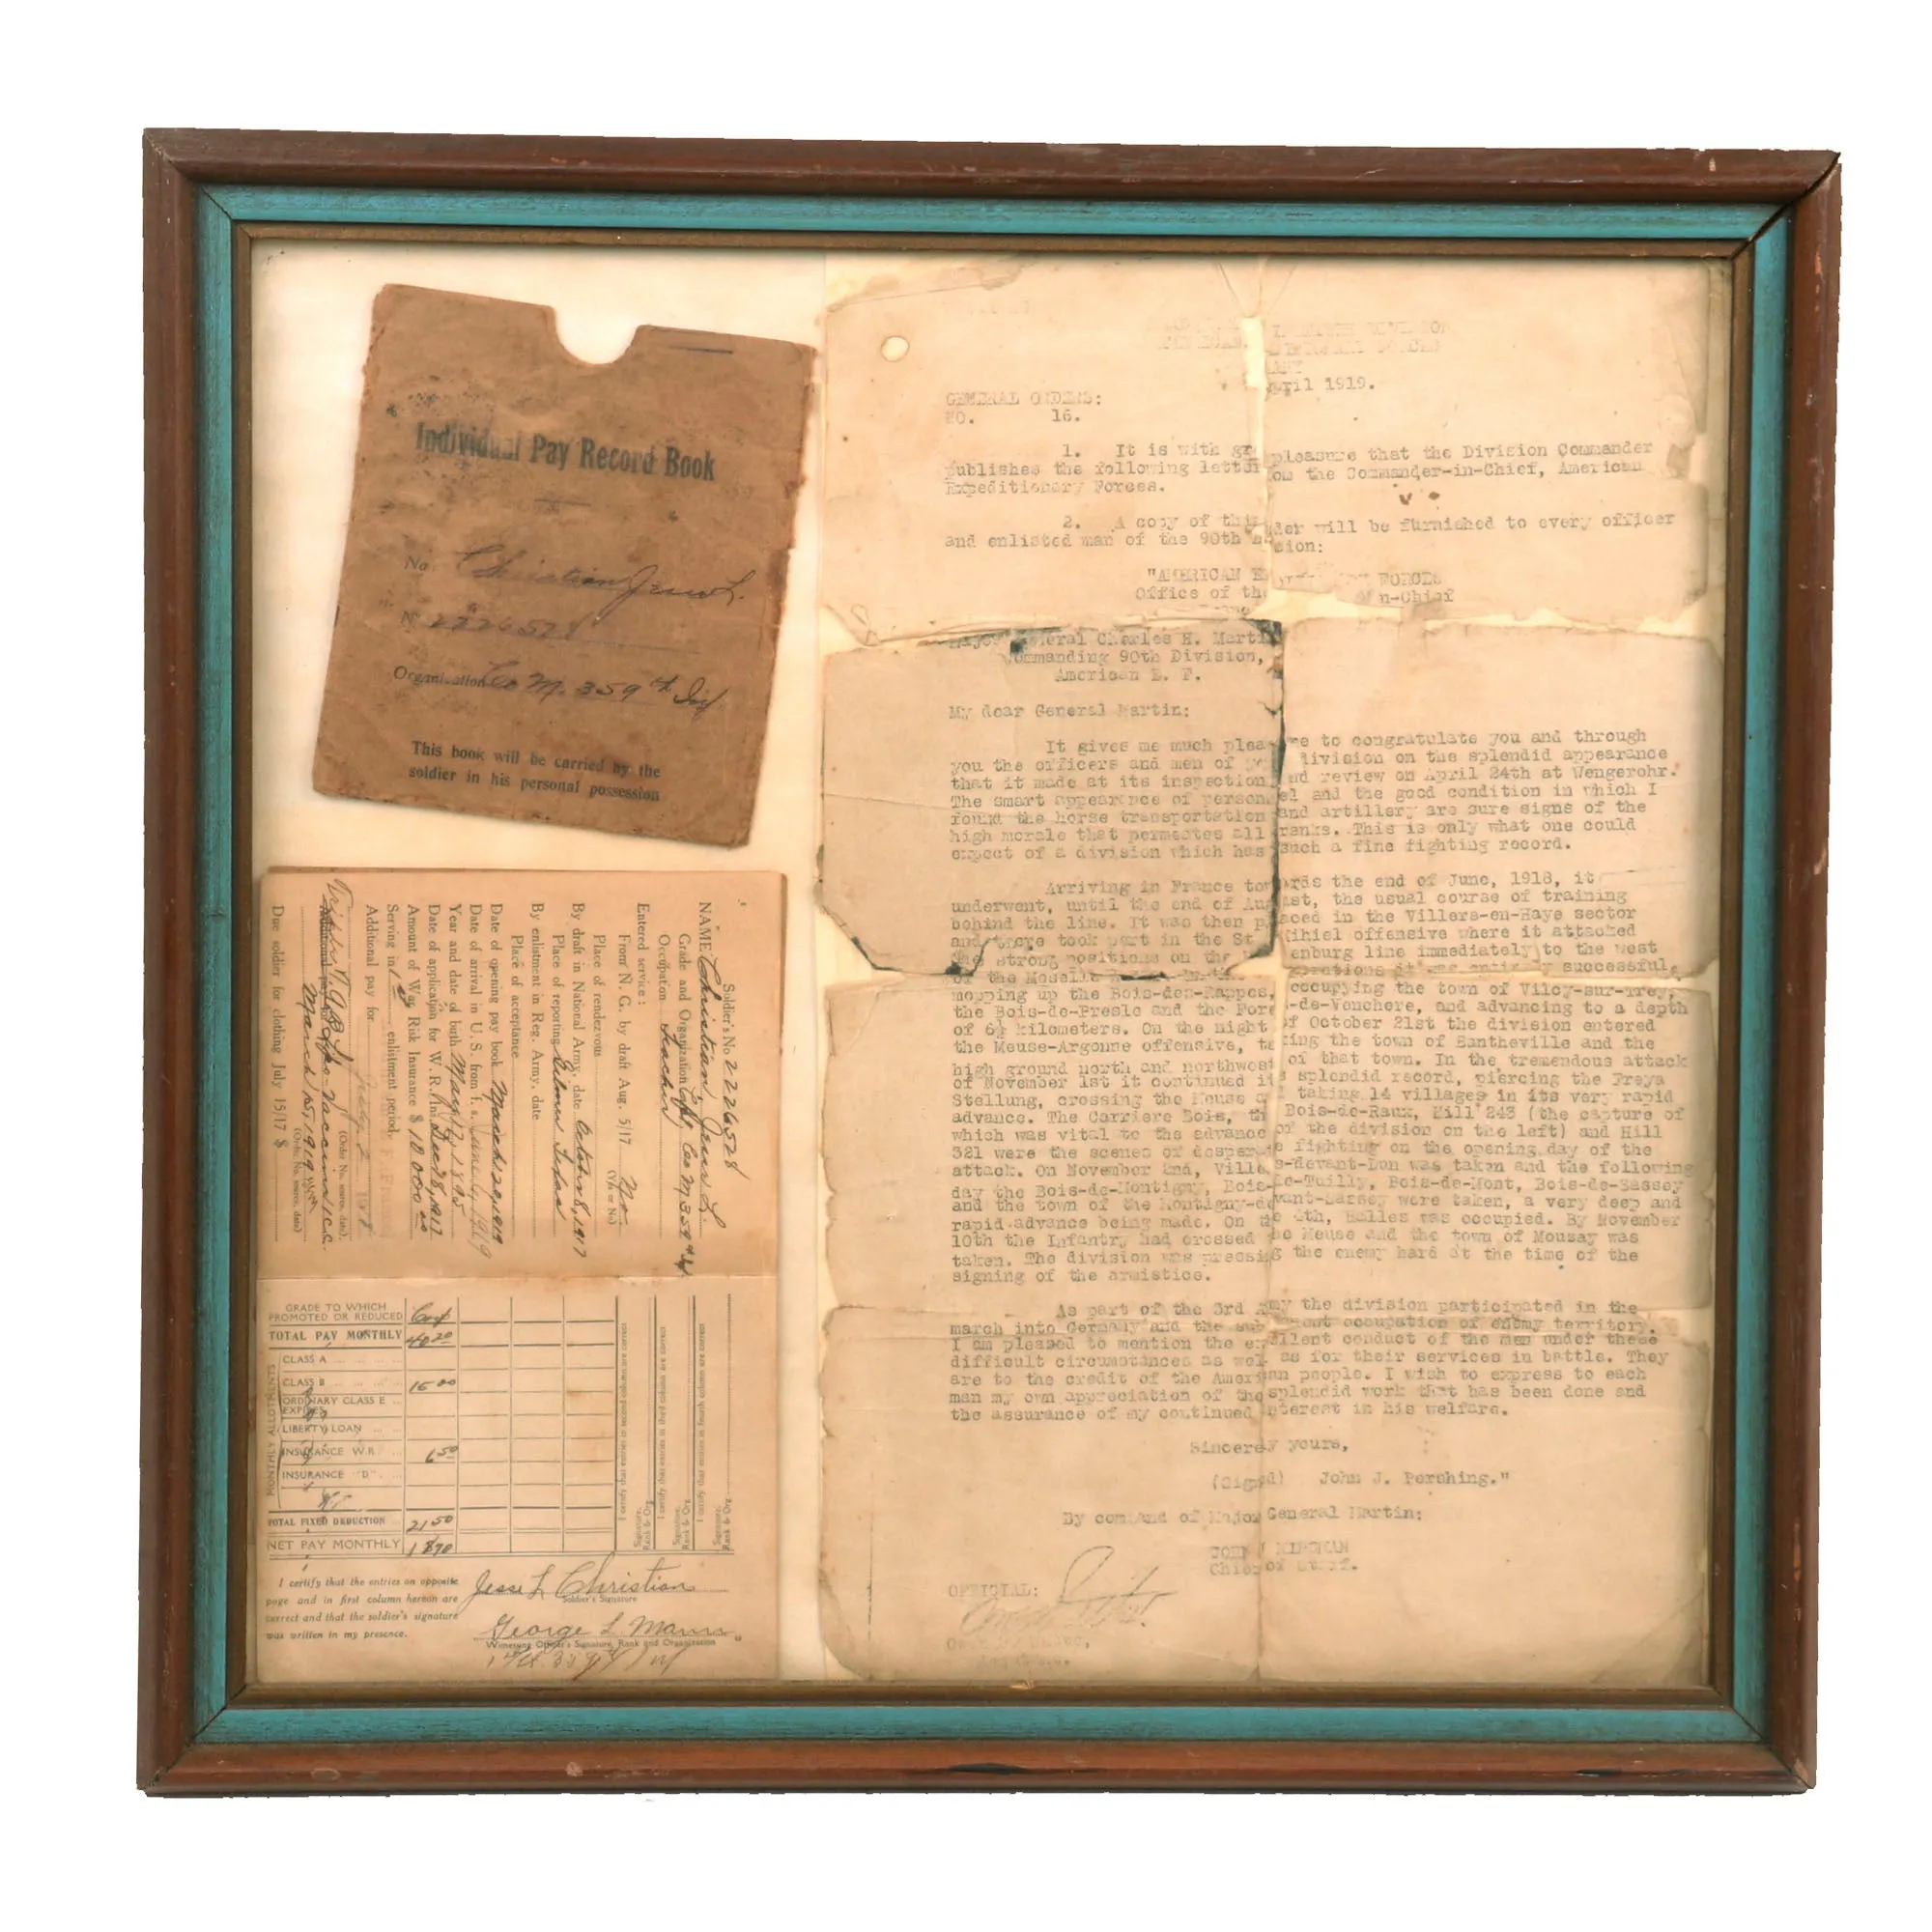 Individual Pay Record Book
No. Christian Jesse L.
No 2226528
Organisation Co M. 359th Inf
This book will be carried by the
soldier in his personal possession
Soldier's No 2226528
NAME Christian, Jesse L.
Grade and Organization Co M 359th Inf
Occupation teacher
Entered service:
From N. G. by draft Aug. 5/17 No
(Yes or No)
Place of rendezvous
By draft in National Army, date October 8, 1917
Place of reporting
By enlistment in Reg. Army, date
Place of acceptance
Date of opening pay book March 20 1919
Date of arrival in U.S. from f. s. June 1919
Year and date of birth May 12, 1895
Date of application for W. R. Ins. Dec 28, 1917
Amount of War Risk Insurance $ 10,000 00
Serving in 1st enlistment period.
Additional pay for
(Order No. source, date).
March 15, 1919
(Order No. source, date)
Due soldier for clothing July 15/17 $
GRADE TO WHICH
PROMOTED OR REDUCED
TOTAL PAY MONTHLY 40 20
MONTHLY ALLOTMENTS
CLASS A
CLASS B 15 00
ORDINARY CLASS E
EXPIRES
LIBERTY LOAN
INSURANCE W.R. 6 50
INSURANCE "D"
TOTAL FIXED DEDUCTION 21 50
NET PAY MONTHLY 18 70
I certify that the entries on opposite
page and in first column herein are
correct and that the soldier's signature
was written in my presence.
Jesse L Christian
Soldier's Signature
George L. Mann
Witnessing Officer's Signature, Rank and Organization
1st Lt. 359th Inf
April 1919.
GENERAL ORDERS:
NO. 16.
1. It is with gr pleasure that the Division Commander
publishes the following letter om the Commander-in-Chief, American
Expeditionary Forces.
2. A copy of this der will be furnished to every officer
and enlisted man of the 90th sion:
"AMERICAN E FORCES
Office of the n-Chief
Major General Charles H. Martin
Commanding 90th Division,
American E. F.
My dear General Martin:
It gives me much pleasure to congratulate you and through
you the officers and men of your division on the splendid appearance
that it made at its inspection and review on April 24th at Wengerohr.
The smart appearance of personnel and the good condition in which I
found the horse transportation and artillery are sure signs of the
high morale that permeates all ranks. This is only what one could
expect of a division which has such a fine fighting record.
Arriving in France towards the end of June, 1918, it
underwent, until the end of August, the usual course of training
behind the line. It was then placed in the Villers-en-Haye sector
and there took part in the St. Mihiel offensive where it attacked
the strong positions on the enburg line immediately to the west
of the Moselle successful,
mopping up the Bois-des-Rappes, occupying the town of Vilcy-sur-Trey,
the Bois-de-Presle and the Fore -de-Venchere, and advancing to a depth
of 6½ kilometers. On the night of October 21st the division entered
the Meuse-Argonne offensive, taking the town of Bantheville and the
high ground north and northwest of that town. In the tremendous attack
of November 1st it continued its splendid record, piercing the Freya
Stellung, crossing the Meuse and taking 14 villages in its very rapid
advance. The Carriere Bois, the Bois-de-Raux, Hill 243 (the capture of
which was vital to the advance of the division on the left) and Hill
321 were the scenes of desperate fighting on the opening day of the
attack. On November 2nd, Villers-devant-Dun was taken and the following
day the Bois-de-Montigny, Bois-de-Tailly, Bois-de-Mont, Bois-de-Sassey
and the town of the Montigny-devant-Sassey were taken, a very deep and
rapid advance being made. On the 4th, Halles was occupied. By November
10th the Infantry had crossed the Meuse and the town of Mouzay was
taken. The division was pressing the enemy hard at the time of the
signing of the armistice.
As part of the 3rd Army the division participated in the
march into Germany and the subsequent occupation of enemy territory.
I am pleased to mention the excellent conduct of the men under these
difficult circumstances as well as for their services in battle. They
are to the credit of the American people. I wish to express to each
man my own appreciation of the splendid work that has been done and
the assurance of my continued interest in his welfare.
Sincerely yours,
(Signed) John J. Pershing."
By command of Major General Martin:
JOHN J KINGMAN
Chief of Staff.
OFFICIAL: